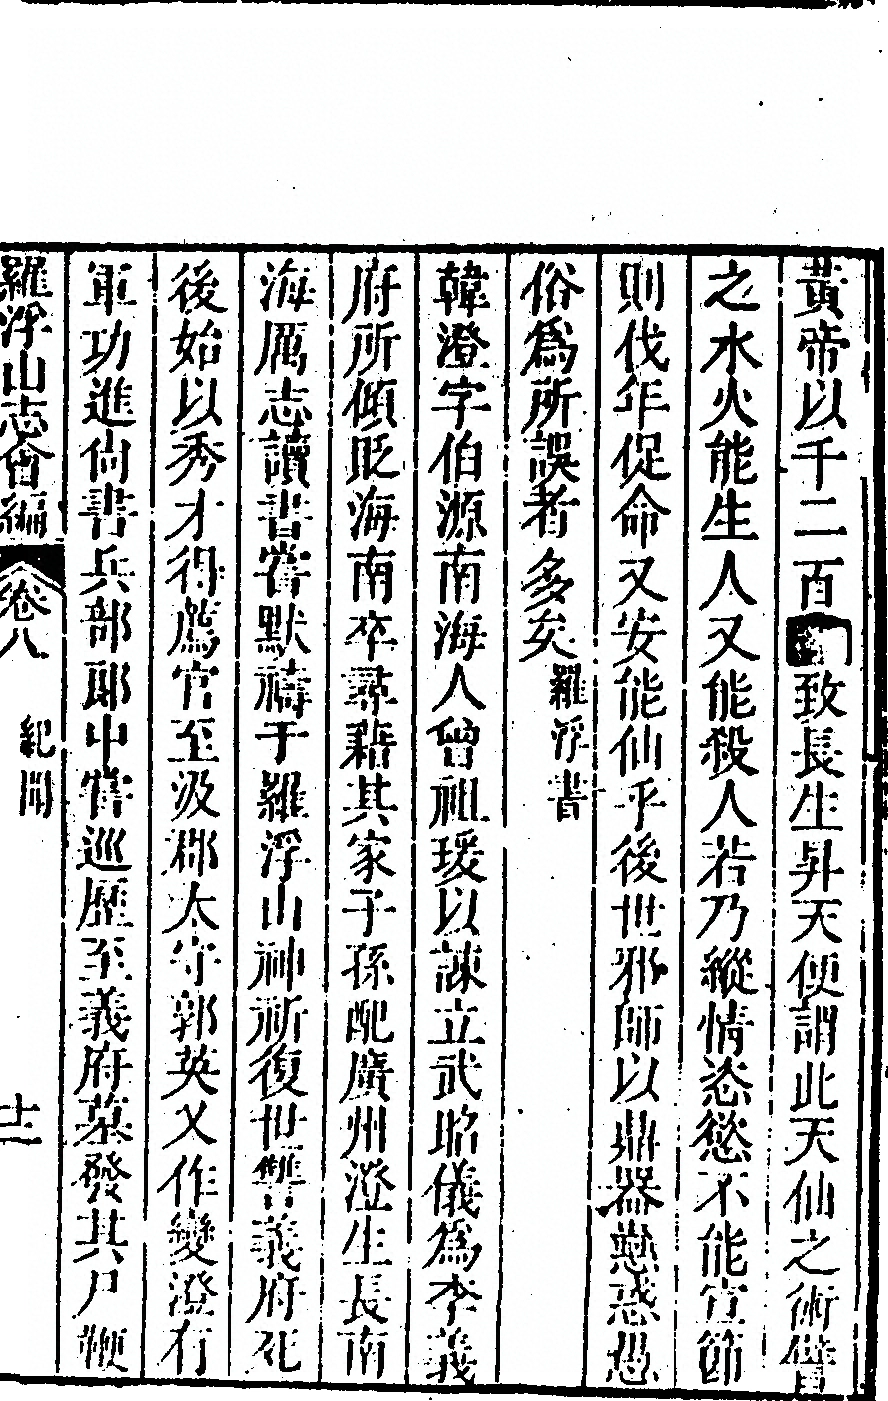 黃帝以千二百致長生昇天便謂此天仙之術譬
之水火能生人又能殺人若乃縱情恣慾不能宣節
則伐年促命又安能仙乎後世邪師以鼎器戀惑愚
俗爲所誤者多矣羅浮書
韓澄字伯源南海人曾祖瑗以諫立武昭儀爲李義
府所傾貶海南卒尋籍其家子孫配廣州澄生長南
海厲志讀書嘗默禱于羅浮山神祈復世讐義府死
後始以秀才得薦官至汲郡太守郭英乂作變澄有
軍功進尚書兵部郎中嘗巡歷至義府墓發其尸鞭
羅浮山志會編 卷八 紀聞 十二